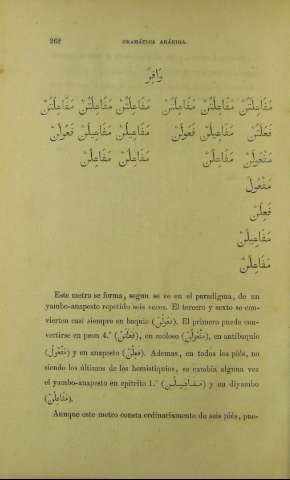 262 GRAMÁTICA ARÁBIGA.
وَافِرَ
مَفَاعِلَتُنْ مَفَاعِلَتُنْ مَفَاعِلَتُنْ مَفَاعِلَتُنْ مَفَاعِلَتُنْ مَفَاعِلَتُنْ
فَعِلَتُنْ مَفَاعِيلُنْ فَعُولُنْ مَفَاعِيلُنْ مَفَاعِيلُنْ فَعُولُنْ
مَفْعُولُنْ مَفَاعِلُنْ مَفَاعِلُنْ مَفَاعِلُنْ
مَفْعُولُ
فَعِلُنْ
مَفَاعِيلُنْ
مَفَاعِلُنْ
Este metro se forma, segun se ve en el paradigma, de un
yambo-anapesto repetido seis veces. El tercero y sexto se con-
vierten casi siempre en baquio (فَعُولُنْ). El primero puede con-
vertirse en peon 4.° (فَعِلَتُنْ), en moloso (مَفْعُولُنْ), en antibaquio
(مَفْعُولُ) y en anapesto (فَعِلُنْ). Ademas, en todos los piés, no
siendo los últimos de los hemistiquios, se cambia alguna vez
el yambo-anapesto en epitrito 1.° (مَفَاعِيلُنْ) y en diyambo
(مَفَاعِلُنْ).
Aunque este metro consta ordinariamente de seis piés, pue-